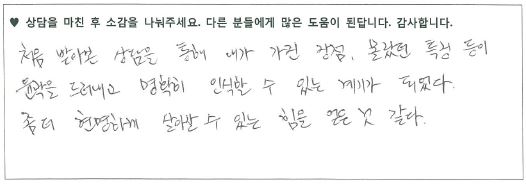 ♥ 상담을 마친 후 소감을 나눠주세요. 다른 분들에게 많은 도움이 된답니다. 감사합니다.
처음 받아본 상담을 통해 내가 가진 장점, 몰랐던 특징 등이
윤곽을 드러내고 명확히 인식할 수 있는 계기가 되었다.
좀 더 현명하게 살아갈 수 있는 힘을 얻은 것 같다.